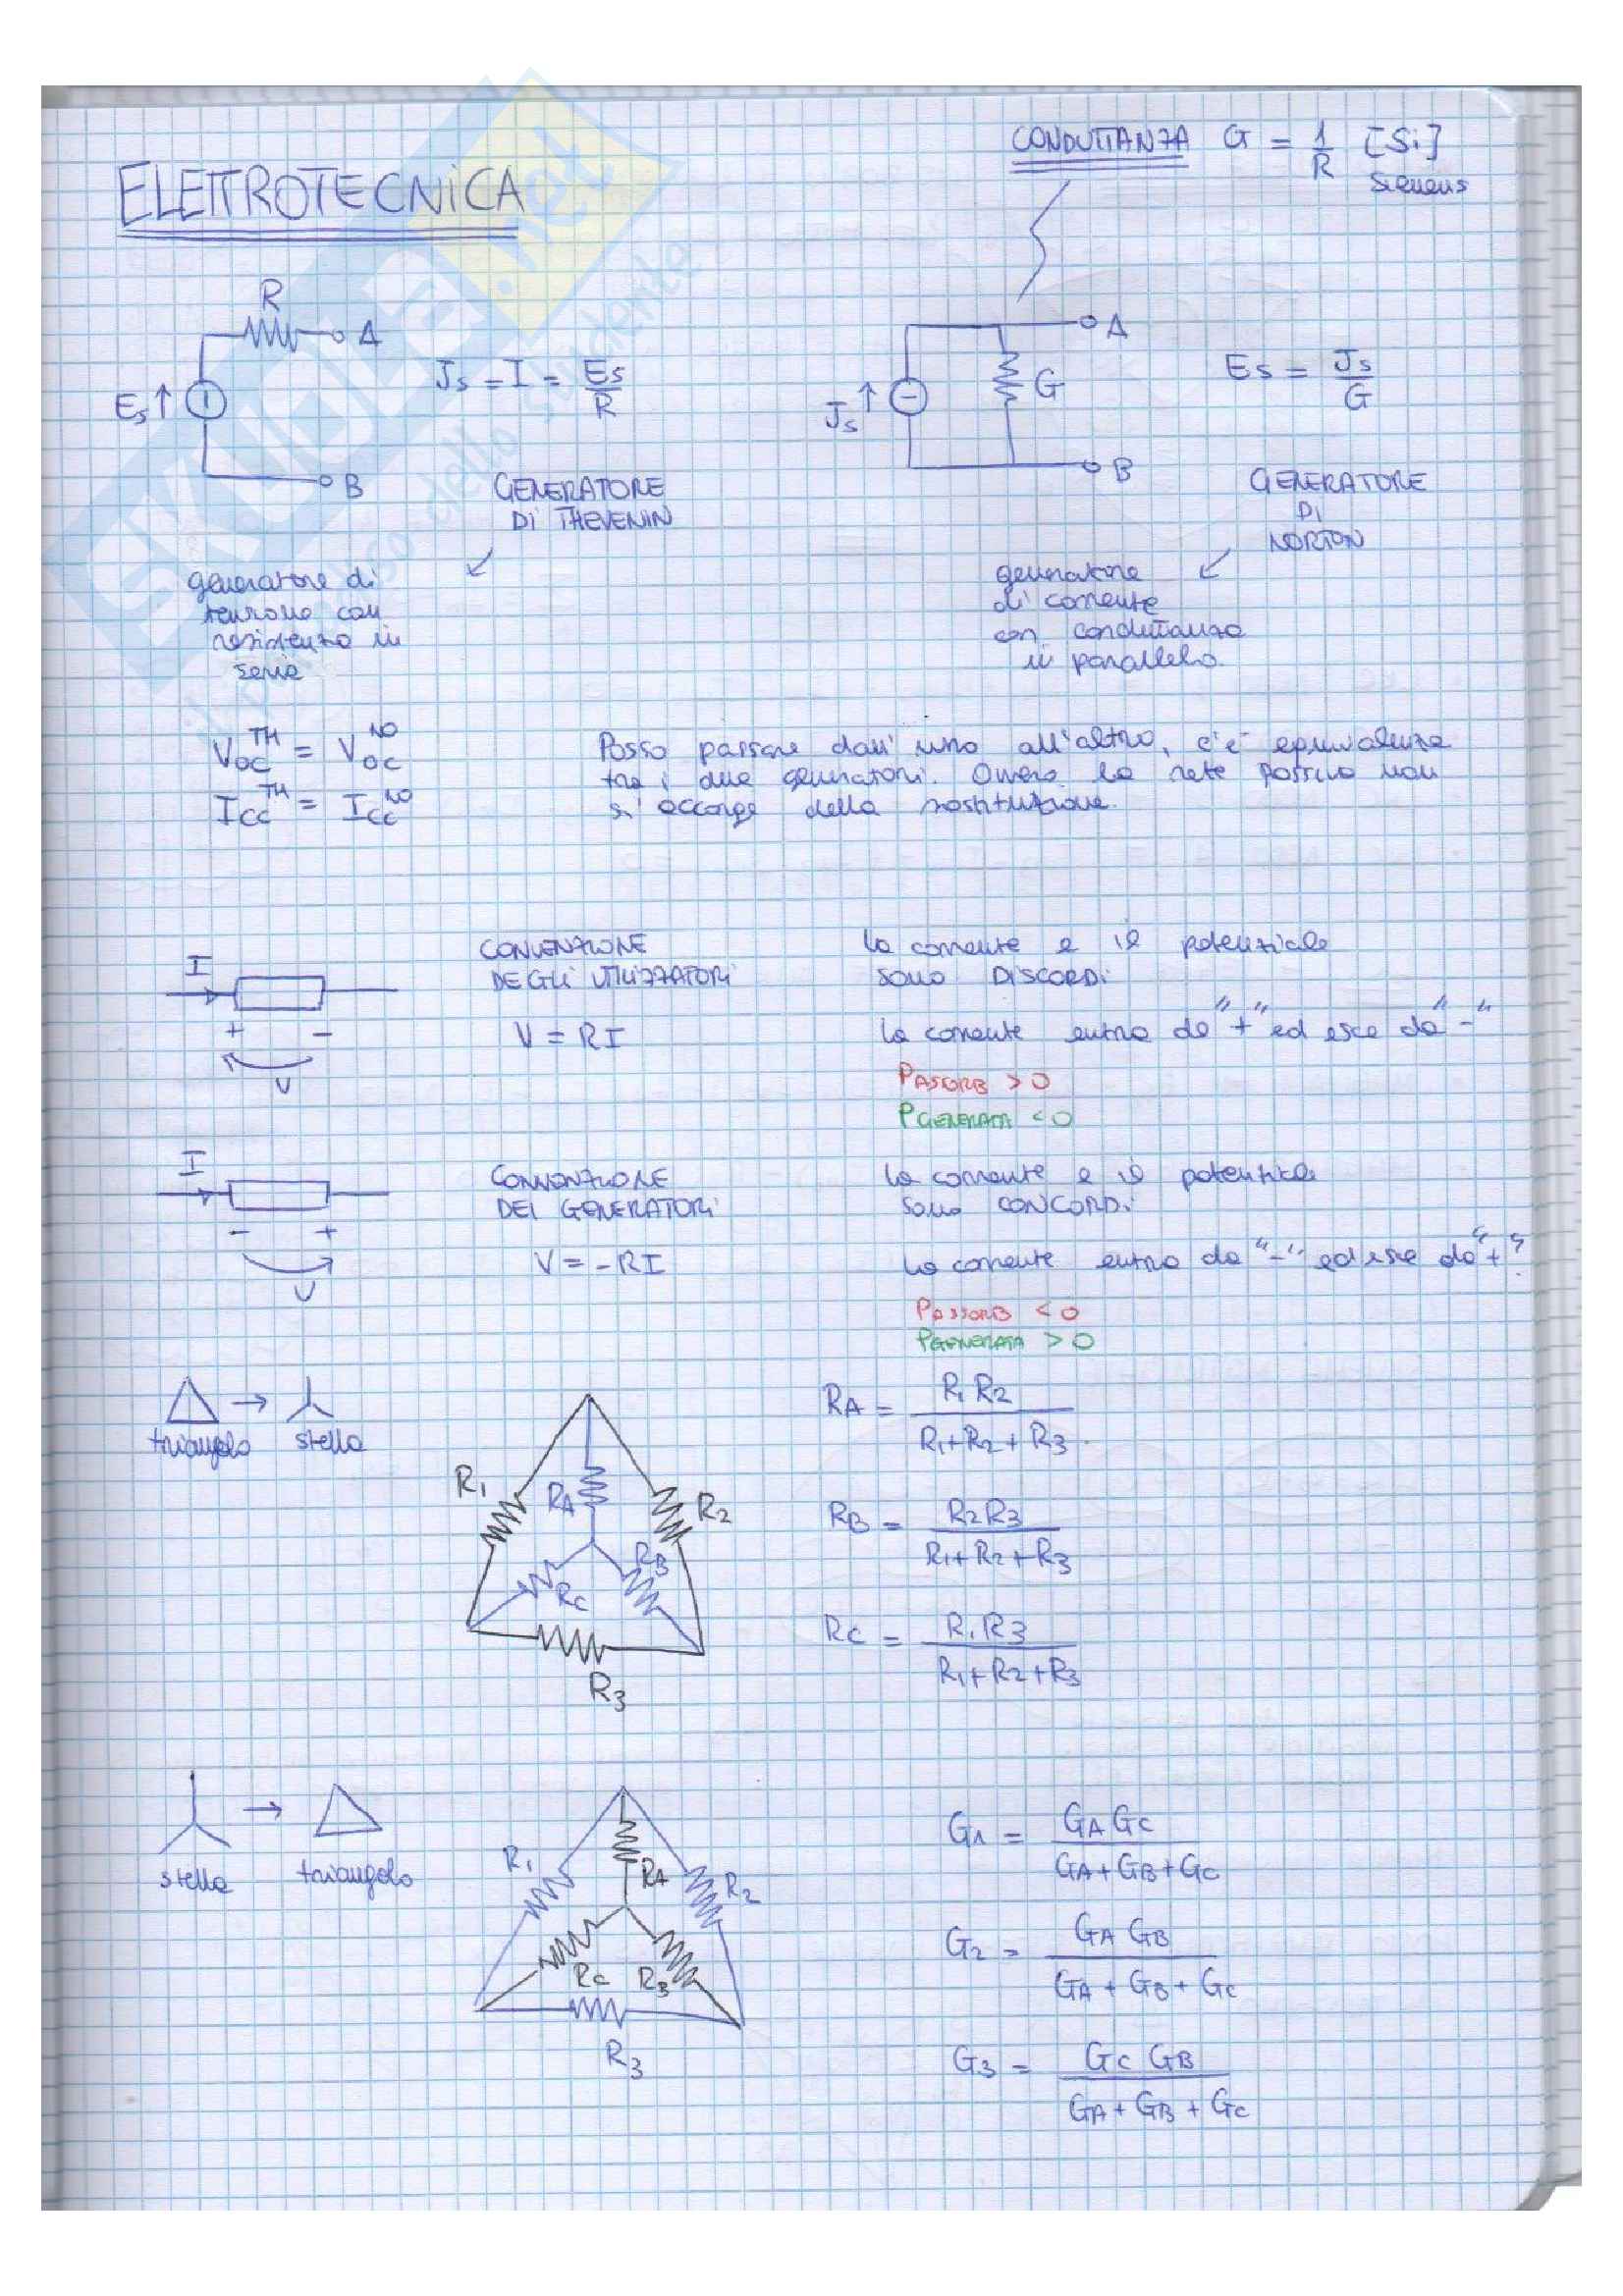 ELETTROTECNICA
CONDUTTANZA G = 1/R [Si]
Siemens
R
A
Es ↑
B
Js = I = Es/R
GENERATORE
DI THEVENIN
generatore di
tensione con
resistenza in
serie
A
Js ↑
G
B
Es = Js/G
GENERATORE
DI
NORTON
generatore
di corrente
con conduttanza
in parallelo.
Voc^TH = Voc^NO
Icc^TH = Icc^NO
Posso passare dall'uno all'altro, c'è equivalenza
tra i due generatori. Ovvero la rete passiva non
si accorge della sostituzione.
I
+ −
V
CONVENZIONE
DEGLI UTILIZZATORI
V = RI
la corrente e il potenziale
sono DISCORDi
la corrente entra da "+" ed esce da "-"
PASSORB > 0
PGENERATA < 0
I
− +
V
CONVENZIONE
DEI GENERATORI
V = -RI
la corrente e il potenziale
sono CONCORDi
la corrente entra da "-" ed esce da "+".
PASSORB < 0
PGENERATA > 0
→
triangolo stella
R1
RA
R2
RB
RC
R3
RA = R1 R2 / R1+R2+R3
RB = R2 R3 / R1+R2+R3
RC = R1 R3 / R1+R2+R3
→
stella triangolo
R1
RA
R2
RC
R3
R3
G1 = GA GC / GA+GB+GC
G2 = GA GB / GA+GB+GC
G3 = GC GB / GA+GB+GC
SKUOLA.net